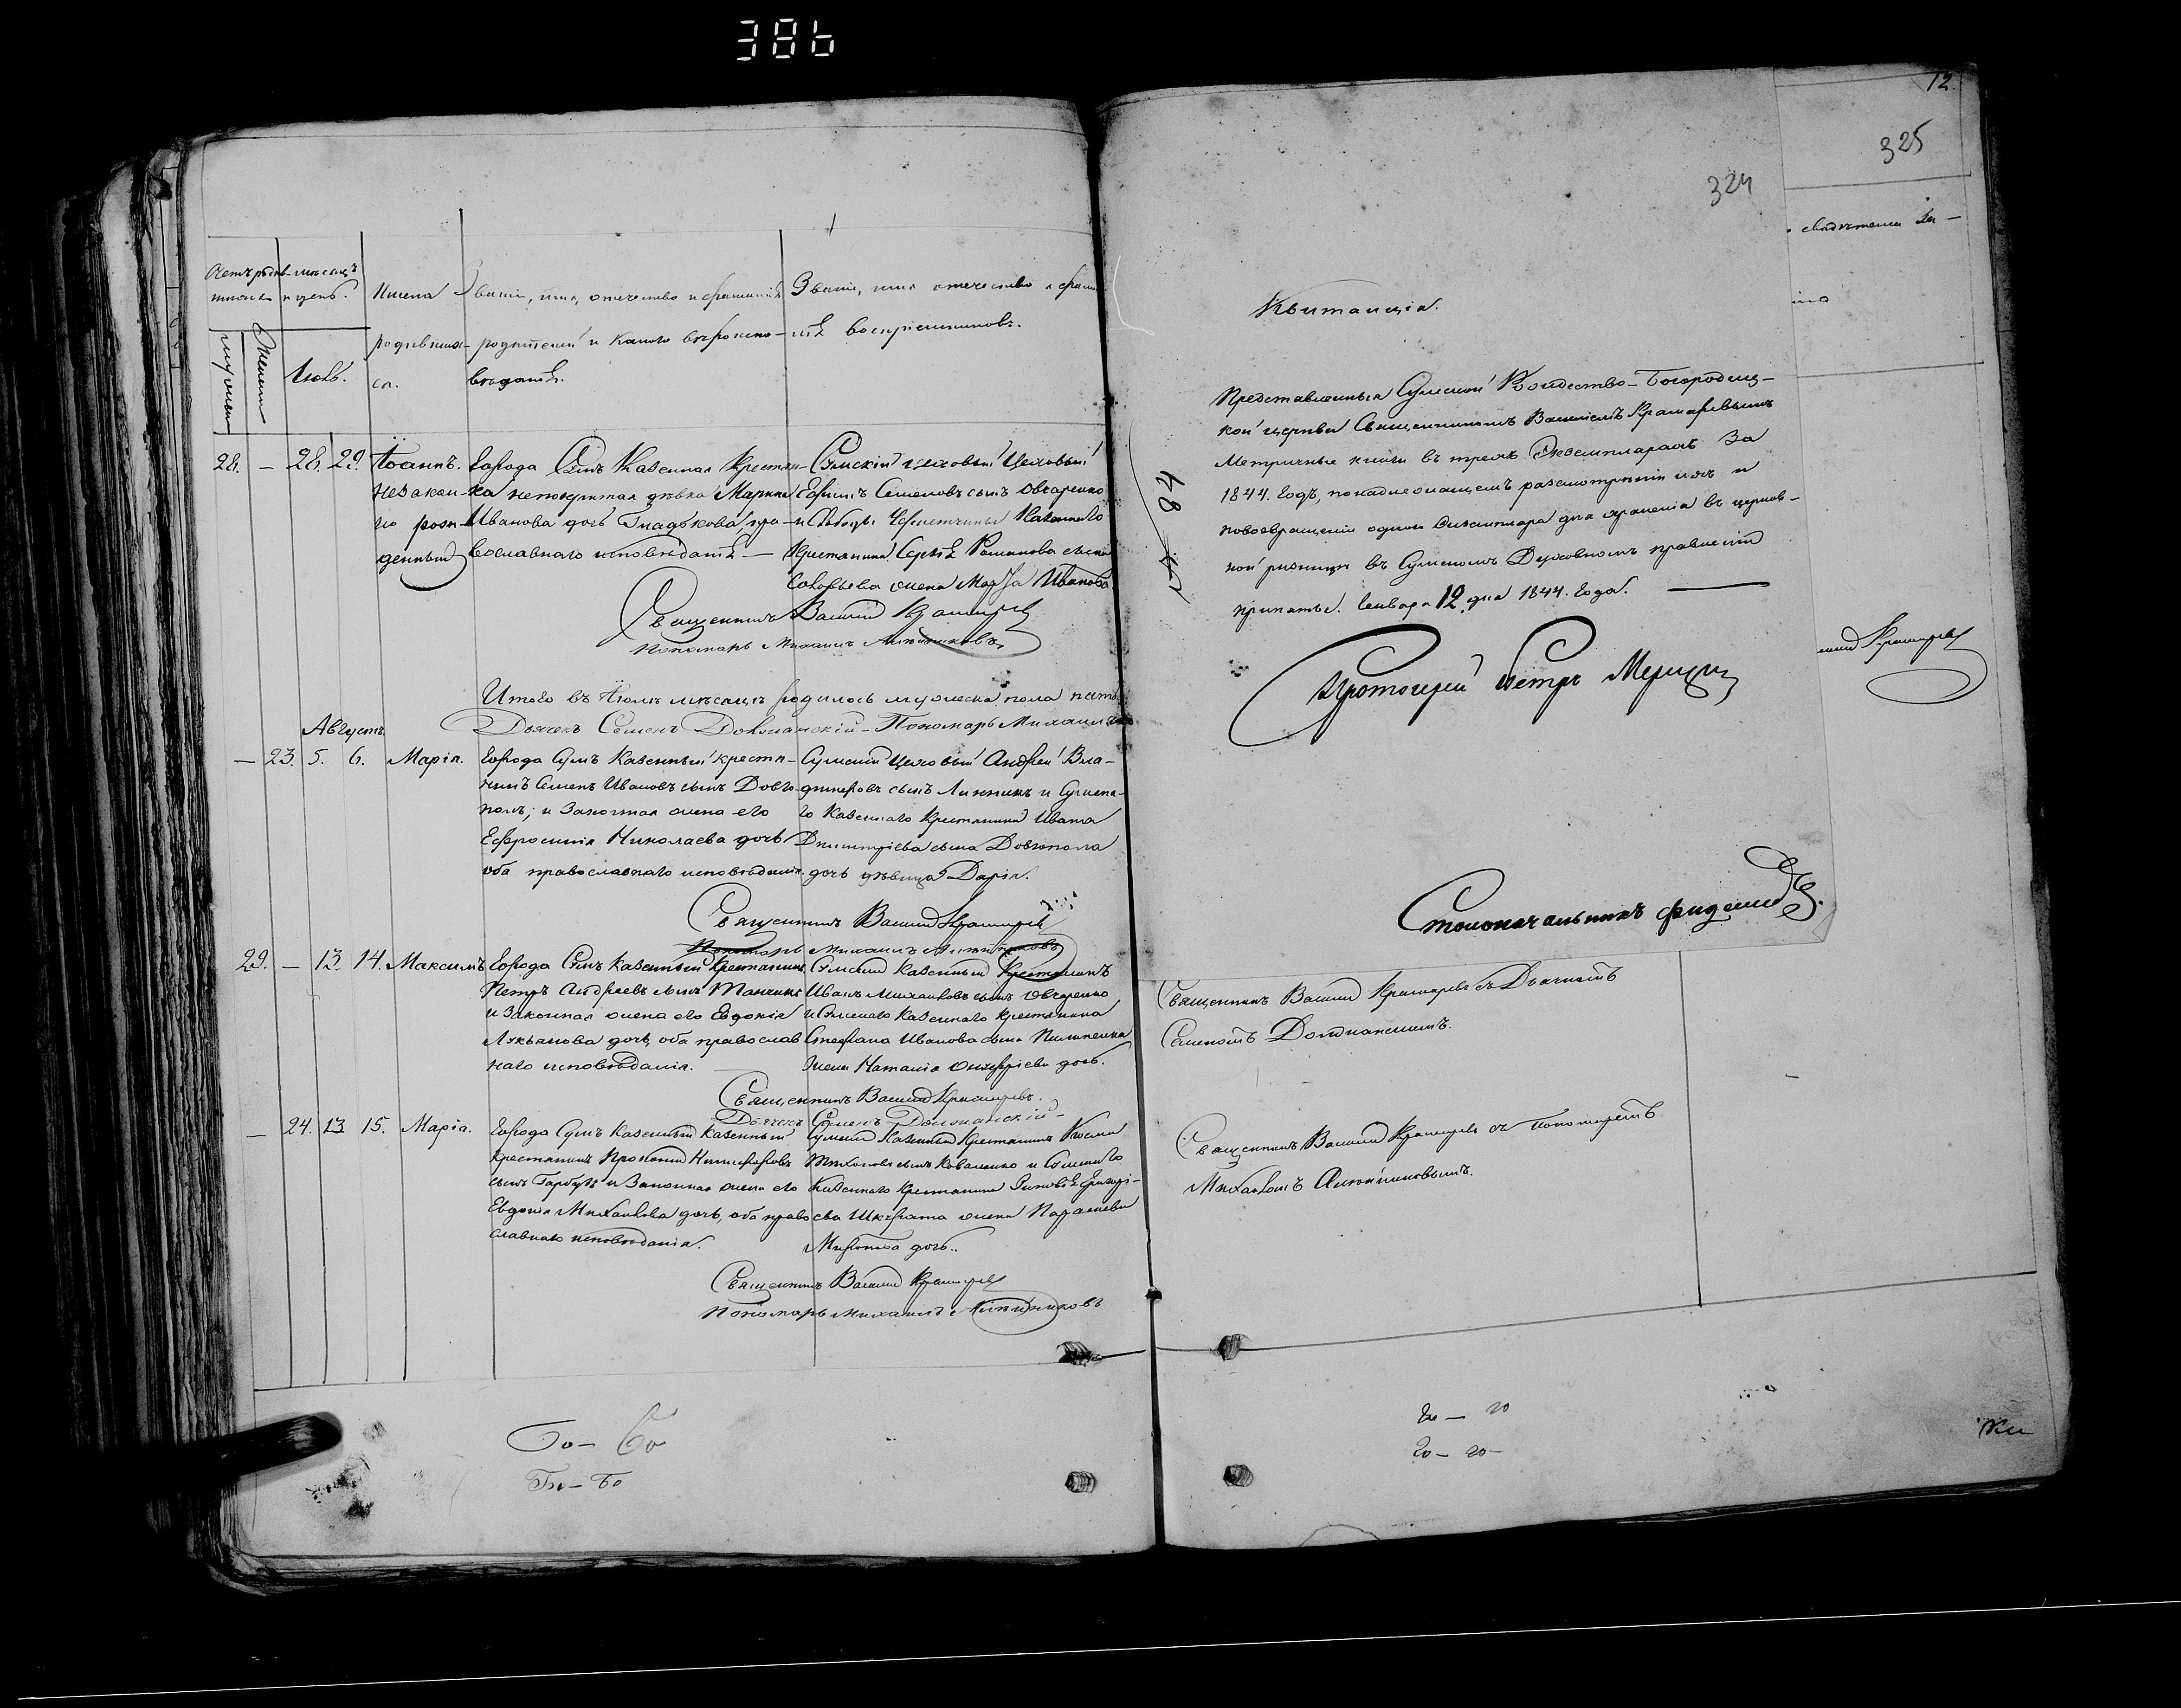 386
Счетъ родив- мѣсяцъ
шихся и день.
мужеска
Женска
Іюль.
Имена
родивших-
ся.
Званіе, имя, отечество и фамилія
родителей и какого вѣроиспо-
вѣданія.
Званіе, имя отечество и фами-
лія воспріемниковъ.
28. — 28. 29. Іоаннъ. Города Сумъ Казенная Крестьян-
незакон- ка непокритая дѣвка Марина
но рож- Иванова дочь Гладкова, пра-
денный вославнаго исповѣданія. —
Сумскій цеховый
Ефимъ Семеновъ сынъ Овчаренко
и Слободы Казеннаго
Крестянина Сергѣя Романова сына
Соловьева жена Марѳа Иванова.
Священникъ Василій Крамаревъ
Пономарь Михаилъ
Итого въ Іюлѣ мѣсяцѣ родилось мужеска пола пять
Дьячекъ Семенъ Должанскій — Пономарь Михаилъ
Августъ
— 23. 5. 6. Марія. Города Сумъ Казенный крестя-
нинъ Семенъ Ивановъ сынъ Довго-
полъ, и Законная жена его
Ефросинія Николаева дочь
оба православнаго исповѣданія.
Сумскій Цеховый Андрей Вла-
диміровъ сынъ Линникъ и Сумска-
го Казеннаго Крестянина Ивана
Димитріева сына Довгопола
дочь дѣвица Дарія.
Священникъ Василій Крамаревъ
Пономарь Михаилъ
29. — 13. 14. Максимъ Города Сумъ Казенный Крестянинъ
Петръ Андреевъ сынъ
и Законная жена его Евдокія
Лукьянова дочь, оба православ
наго исповѣданія.
Сумскій Казенный Крестянинъ
Иванъ Михайловъ сынъ Овчаренко
и Сумскаго Казеннаго Крестянина
Стефана Иванова сына
жена Наталія Онуфріева дочь.
Священникъ Василій Крамаревъ.
Дьячекъ Семенъ Должанскій —
— 24. 13 15. Марія. Города Сумъ Казенный Казенный
Крестянинъ Прокопій Никифоровъ
сынъ Гарбузъ и Законная жена его
Евдокія Михайлова дочь, оба право
славнаго исповѣданія.
Сумскій Казенный Крестянинъ Косма
Тихоновъ сынъ Коваленко и Сумскаго
Казеннаго Крестянина Зиновія Григорі-
ева жена Параскева
дочь..
Священникъ Василій Крамаревъ
Пономарь Михаилъ
12.
325
324
свидѣтели За —
84
Квитанція.
Представленныя Сумской Рождество-Богородиц-
кой церкви Священникомъ Василіемъ Крамаревымъ
Метричные книги въ трехъ Экземплярахъ За
1844. Годъ, по надлежащемъ разсмотрѣніи ихъ и
по возвращеніи одного Экземпляра для храненія въ церков-
ной ризницѣ въ Сумскомъ Духовномъ правленіи
приняты. Генваря 12 дня 1844. Года. —
Протоіерей Петръ
Крамаревъ
Столоначальникъ
Священникъ Василій Крамаревъ съ Дьячкомъ
Семеномъ Должанскимъ.
Священникъ Василій Крамаревъ съ Пономаремъ
Михаиломъ